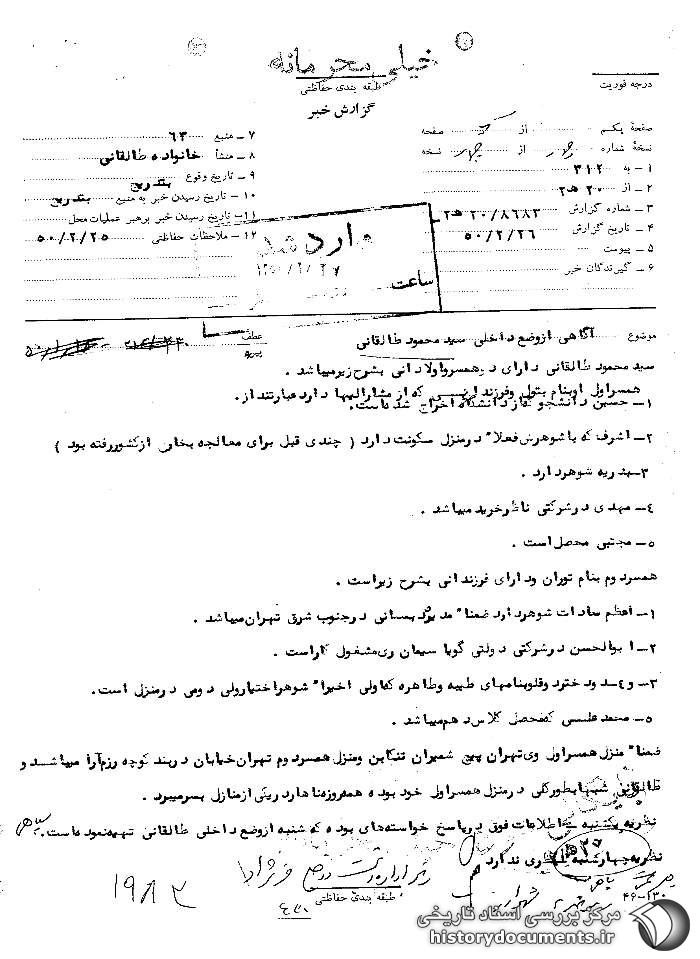 خیلی محرمانه
طبقه بندی حفاظتی
گزارش خبر
درجه فوریت
صفحهٔ یکم از یک صفحه
نسخهٔ شماره چهار از چهار نسخه
۱ - به ۳۱۲
۲ - از ۲۰ هـ ۲
۳ - شماره گزارش ۲۰/۸۶۸۳ هـ ۲
۴ - تاریخ گزارش ۵۰/۲/۲۶
۵ - پیوست
۶ - گیرندگان خبر
۷ - منبع ۶۳
۸ - منشأ خانواده طالقانی
۹ - تاریخ وقوع بتدریج
۱۰ - تاریخ رسیدن خبر به منبع بتدریج
۱۱ - تاریخ رسیدن خبر برهبر عملیات محل
۱۲ - ملاحظات حفاظتی ۵۰/۲/۲۵
وارد شد
ساعت
موضوع آگاهی ازوضع داخلی سید محمود طالقانی
عطف
پیرو
سید محمود طالقانی دارای دوهمسرواولادانی بشرح زیرمیباشد .
همسراول اوبنام بتول وفرزندانی که از مشارالیها دارد عبارتند از .
۱ـ حسین دانشجو که از دانشگاه اخراج شده است .
۲ـ اشرف که با شوهرش فعلا" درمنزل سکونت دارد ( چندی قبل برای معالجه بخارج ازکشوررفته بود )
۳ـ بدریه شوهردارد .
۴ـ مهدی درشرکتی ناظرخرید میباشد .
۵ـ مجتبی محصل است .
همسردوم بنام توران ودارای فرزندانی بشرح زیراست .
۱ـ اعظم سادات شوهردارد ضمنا" مدیر دبستانی درجنوب شرق تهران میباشد .
۲ـ ابوالحسن درشرکتی دولتی گویا سیمان ری مشغول کاراست .
۳ـ و ۴ـ دودختردوقلوبنامهای طیبه وطاهره که اولی اخیرا" شوهراختیارولی دومی درمنزل است .
۵ـ محمدعلی که محصل کلاس دهم میباشد .
ضمنا" منزل همسراول وی تهران پیچ شمیران تنکابن ومنزل همسردوم تهران خیابان دربند کوچه رزم آرا میباشد و
طالقانی شبها بطورکلی درمنزل همسراول خود بوده همه روزه ناهاردریکی ازمنازل بسرمیبرد .
نظریه یکشنبه : اطلاعات فوق درپاسخ خواسته های بوده که شنبه ازوضع داخلی طالقانی تهیه نموده است .
نظریه چهارشنبه نظری ندارد
طبقه بندی حفاظتی
مرکز بررسی اسناد تاریخی
historydocuments.ir